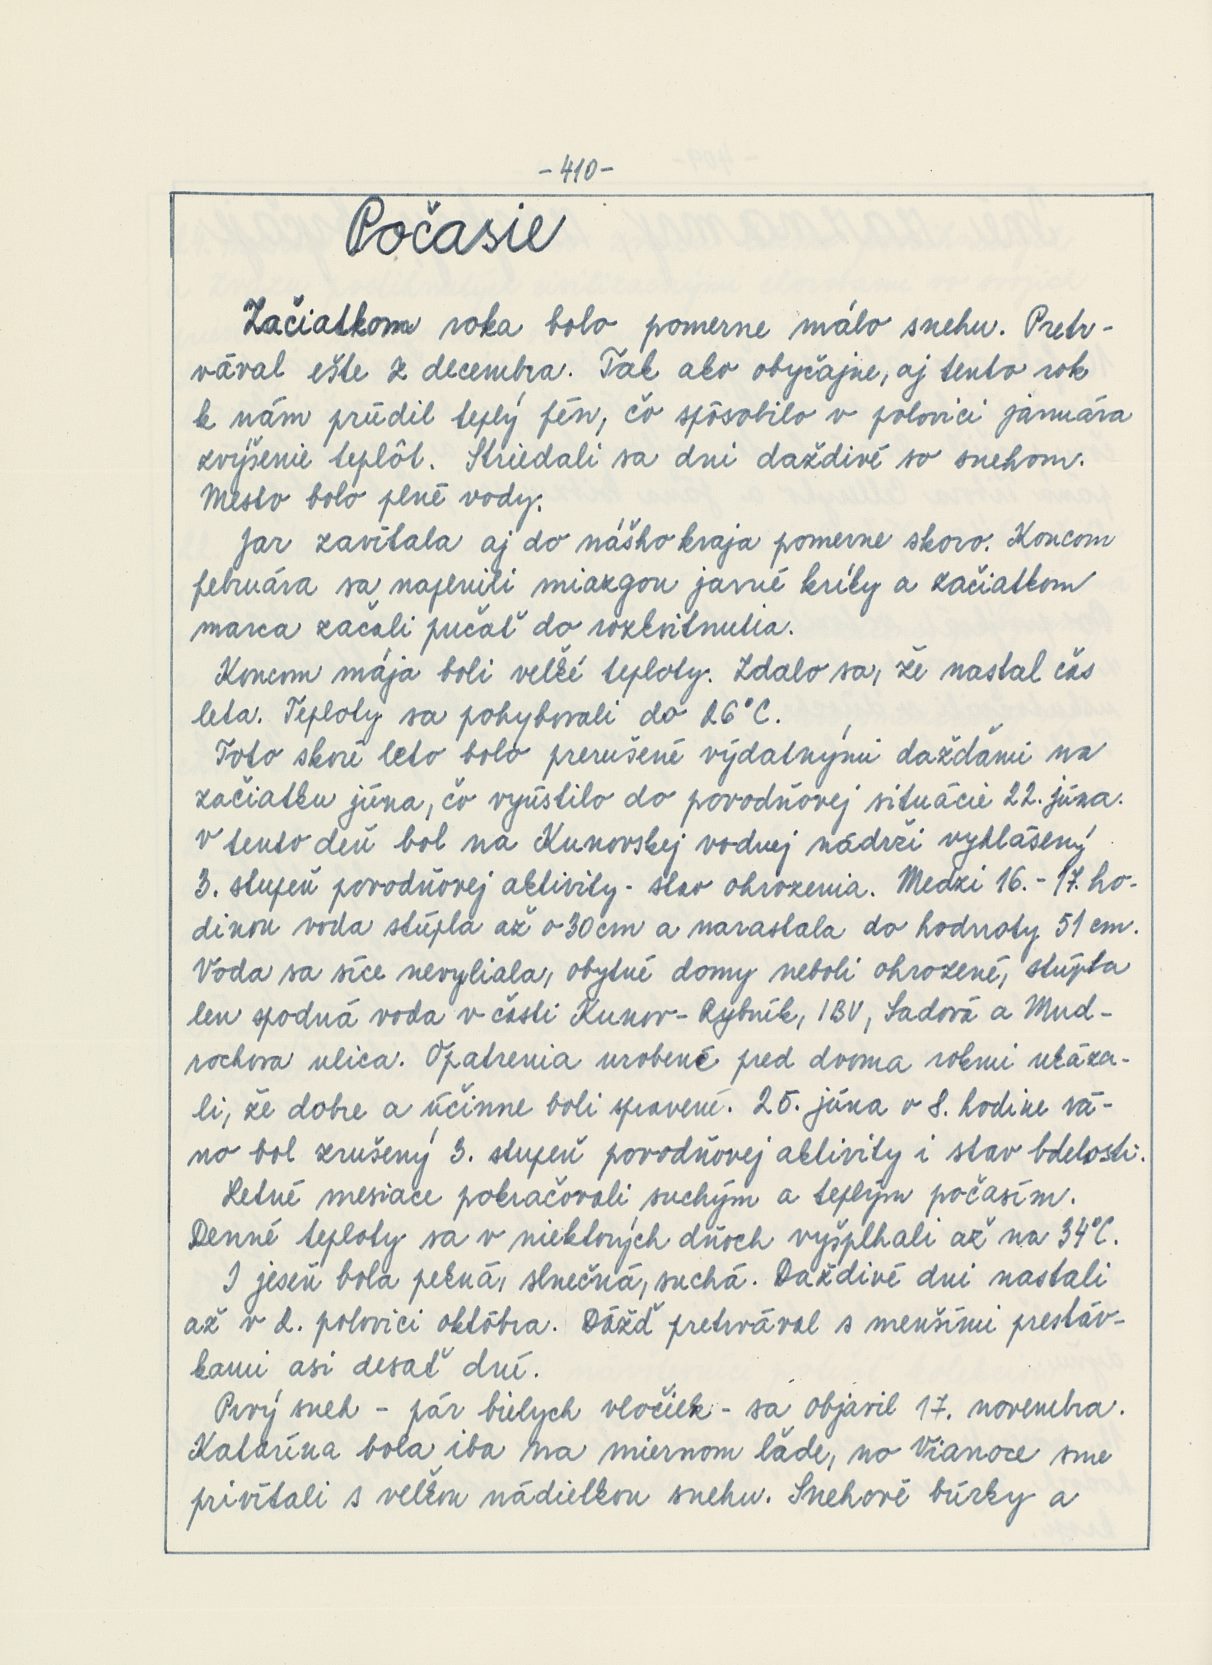 -410-
Počasie
Začiatkom roka bolo pomerne málo snehu. Pretr-
vával ešte z decembra. Tak ako obyčajne, aj tento rok
k nám prúdil teplý fén, čo spôsobilo v polovici januára
zvýšenie teplôt. Striedali sa dni daždivé so snehom.
Mesto bolo plné vody.
Jar zavítala aj do nášho kraja pomerne skoro. Koncom
februára sa naplnili miazgou jarné kríky a začiatkom
marca začali pučať do rozkvitnutia.
Koncom mája boli veľké teploty. Zdalo sa, že nastal čas
leta. Teploty sa pohybovali do 26°C.
Toto skoré leto bolo prerušené výdatnými dažďami na
začiatku júna, čo vyústilo do povodňovej situácie 22. júna.
V tento deň bol na Kunovskej vodnej nádrži vyhlásený
3. stupeň povodňovej aktivity - stav ohrozenia. Medzi 16. - 17. ho-
dinou voda stúpla až o 30 cm a narastala do hodnoty 51 cm.
Voda sa síce nevyliala, obytné domy neboli ohrozené, stúpla
len spodná voda v časti Kunov - Rybník, IBV, Sadová a Mud-
rochova ulica. Opatrenia urobené pred dvoma rokmi ukáza-
li, že dobre a účinne boli spravené. 25. júna o 8. hodine rá-
no bol zrušený 3. stupeň povodňovej aktivity i stav bdelosti.
Letné mesiace pokračovali suchým a teplým počasím.
Denné teploty sa v niektorých dňoch vyšplhali až na 34°C.
I jeseň bola pekná, slnečná, suchá. Daždivé dni nastali
až v 2. polovici októbra. Dážď pretrvával s menšími prestáv-
kami asi desať dní.
Prvý sneh - pár bielych vločiek - sa objavil 17. novembra.
Katarína bola iba na miernom ľade, no Vianoce sme
privítali s veľkou nádielkou snehu. Snehové búrky a